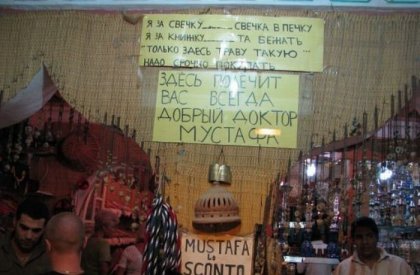 Я ЗА СВЕЧКУ......СВЕЧКА В ПЕЧКУ
Я ЗА КНИЖКУ......ТА БЕЖАТЬ
"ТОЛЬКО ЗДЕСЬ ТРАВУ ТАКУЮ"
НАДО СРОЧНО ПОКУПАТЬ
ЗДЕСЬ ПОЛЕЧИТ
ВАС ВСЕГДА
ДОБРЫЙ ДОКТОР
МУСТАФА
MUSTAFA
Lo
SCONTO